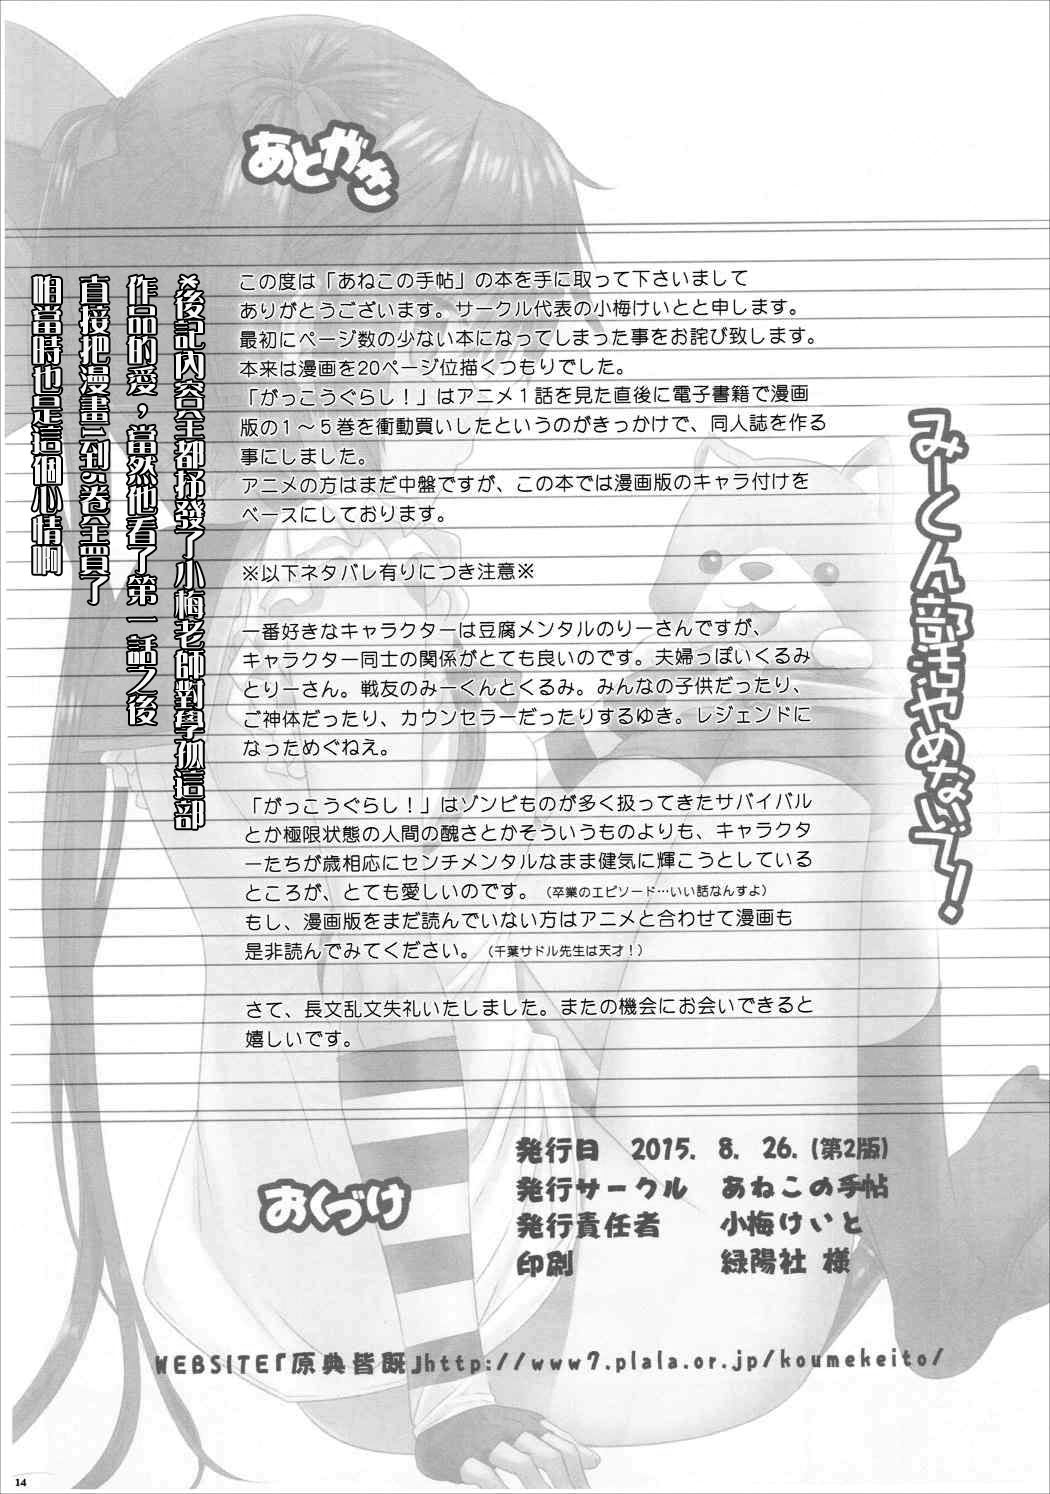 あとがき
この度は「あねこの手帖」の本を手に取って下さいまして
ありがとうございます。サークル代表の小梅けいとと申します。
最初にページ数の少ない本になってしまった事をお詫び致します。
本来は漫画を20ページ位描くつもりでした。
「がっこうぐらし！」はアニメ１話を見た直後に電子書籍で漫画
版の１～５巻を衝動買いしたというのがきっかけで、同人誌を作る
事にしました。
アニメの方はまだ中盤ですが、この本では漫画版のキャラ付けを
ベースにしております。
※以下ネタバレ有りにつき注意※
一番好きなキャラクターは豆腐メンタルのりーさんですが、
キャラクター同士の関係がとても良いのです。夫婦っぽいくるみ
とりーさん。戦友のみーくんとくるみ。みんなの子供だったり、
ご神体だったり、カウンセラーだったりするゆき。レジェンドに
なっためぐねえ。
「がっこうぐらし！」はゾンビものが多く扱ってきたサバイバル
とか極限状態の人間の醜さとかそういうものよりも、キャラクタ
ーたちが歳相応にセンチメンタルなまま健気に輝こうとしている
ところが、とても愛しいのです。（卒業のエピソード…いい話なんすよ）
もし、漫画版をまだ読んでいない方はアニメと合わせて漫画も
是非読んでみてください。（千葉サドル先生は天才！）
さて、長文乱文失礼いたしました。またの機会にお会いできると
嬉しいです。
みーくん部活やめないで！
*後記內容全都抒發了小梅老師對學孤這部
作品的愛，當然他看了第一話之後
直接把漫畫1到5卷全買了
怕當時也是這個心情啊
おくづけ
発行日 2015. 8. 26.(第2版)
発行サークル あねこの手帖
発行責任者 小梅けいと
印刷 緑陽社 様
WEBSITE『原典皆既』http://www7.plala.or.jp/koumekeito/
14